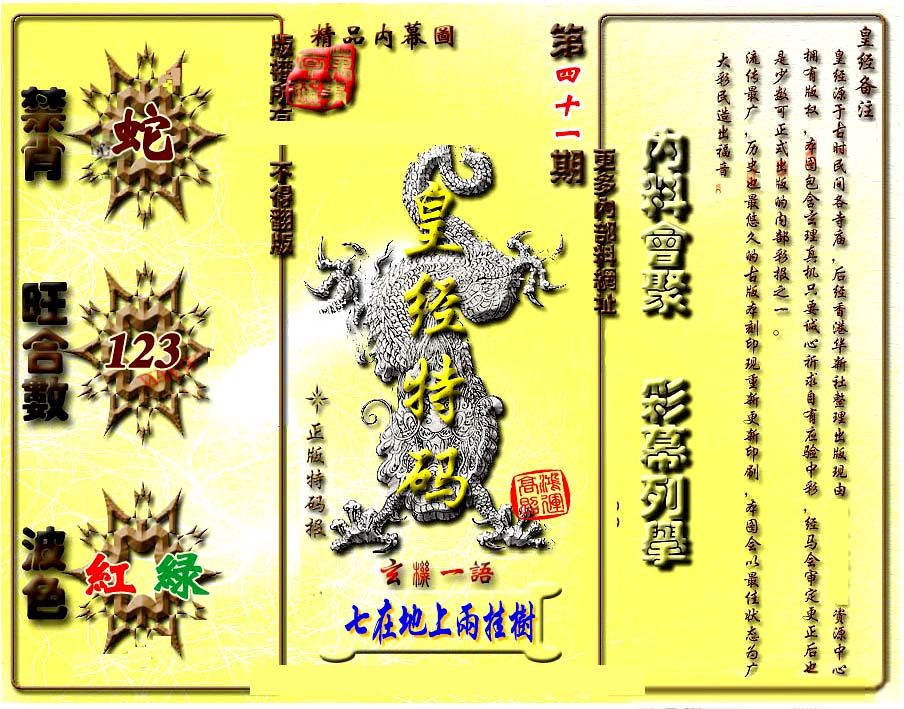 皇经备注
皇经源于古时民间各寺庙，后经香港华新社整理出版现由
资源中心
拥有版权，本图包含玄理真机只要诚心祈求自有应验中彩，经马会审定更正后也
是少数可正式出版的内部彩报之一。
流传最广，历史也最悠久的古版本刻印现重新更新印刷，本图会以最佳状态为广
大彩民造出福音
内料會聚
彩幕列舉
更多內部料網址
第四十一期
精品内幕圖
皇经特码
鴻運
正版特码报
玄機一語
七在地上兩挂樹
版權所有
不得翻版
禁肖
蛇
旺合數
123
波色
紅 綠